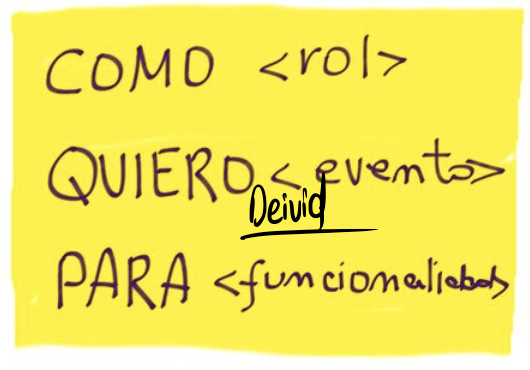 COMO <rol>
QUIERO <evento>
Deivid
PARA <funcionalidad>